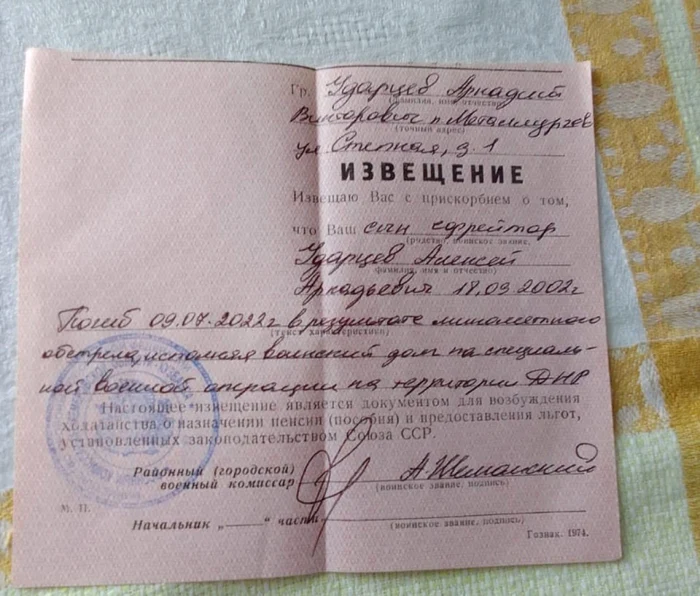 Гр. Ударцев Аркадий
(фамилия, имя, отчество)
Викторович п. Металлургов
(точный адрес)
ул Степная, д. 1
ИЗВЕЩЕНИЕ
Извещаю Вас с прискорбием о том,
что Ваш сын ефрейтор
(родство, воинское звание,
Ударцев Алексей
фамилия, имя и отчество)
Аркадьевич 18.09.2002г
Погиб 09.07.2022г в результате минометного
(текст характеристики)
обстрела, исполняя воинский долг на специаль-
ной военной операции на территории ДНР
Настоящее извещение является документом для возбуждения
ходатайства о назначении пенсии (пособия) и предоставления льгот,
установленных законодательством Союза ССР.
Районный (городской)
военный комиссар
(воинское звание, подпись)
М. П.
Начальник „ “ части
(воинское звание, подпись)
Гознак. 1974.